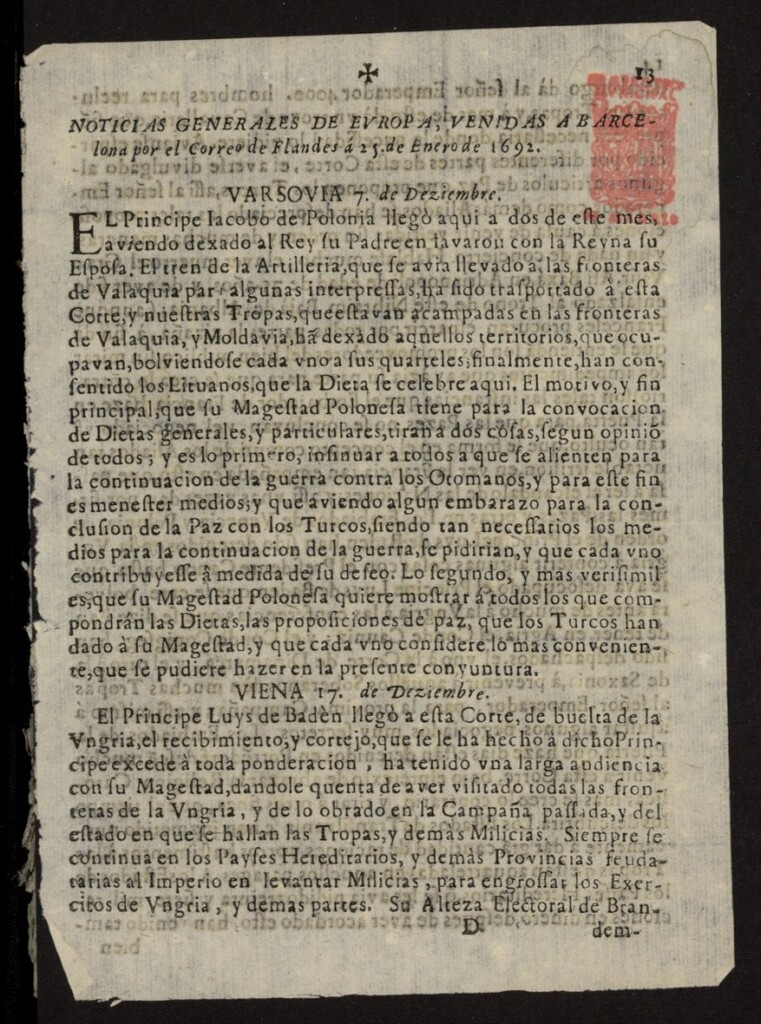 ✠ 13
NOTICIAS GENERALES DE EVROPA, VENIDAS A BARCE-
lona por el Correo de Flandes á 25. de Enero de 1692.
VARSOVIA 7. de Deziembre.
EL Principe Iacobo de Polonia llegò aqui a dos de este mes,
aviendo dexado al Rey su Padre en Iavarou con la Reyna su
Esposa. El tren de la Artilleria, que se avia llevado a las fronteras
de Valaquia para algunas interpressas, ha sido trasportado à esta
Corte, y nuestras Tropas, que estavan acampadas en las fronteras
de Valaquia, y Moldavia, ha dexado aquellos territorios, que ocu-
pavan, bolviendose cada vno a sus quarteles; finalmente, han con-
sentido los Lituanos, que la Dieta se celebre aqui. El motivo, y fin
principal, que su Magestad Polonesa tiene para la convocacion
de Dietas generales, y particulares, tiran a dos cosas, segun opiniō
de todos; y es lo primero, insinuar a todos a que se alienten para
la continuacion de la guerra contra los Otomanos, y para este fin
es menester medios; y que aviendo algun embarazo para la con-
clusion de la Paz con los Turcos, siendo tan necessarios los me-
dios para la continuacion de la guerra, se pidirian, y que cada vno
contribuyesse â medida de su deseo. Lo segundo, y mas verisimil
es, que su Magestad Polonesa quiere mostrar á todos los que com-
pondrán las Dietas, las proposiciones de paz, que los Turcos han
dado à su Magestad, y que cada vno considere lo mas convenien-
te, que se pudiere hazer en la presente conyuntura.
VIENA 17. de Deziembre.
El Principe Luys de Badèn llegò a esta Corte, de buelta de la
Vngria, el recibimiento, y cortejo, que se le ha hecho à dicho Prin-
cipe excede à toda ponderacion, ha tenido vna larga audiencia
con su Magestad, dandole quenta de aver visitado todas las fron-
teras de la Vngria, y de lo obrado en la Campaña passada, y del
estado en que se hallan las Tropas, y demàs Milicias. Siempre se
continua en los Payses Hereditarios, y demàs Provincias feuda-
tarias al Imperio en levantar Milicias, para engrossar los Exer-
citos de Vngria, y demas partes. Su Alteza Electoral de Bran-
D. dem-